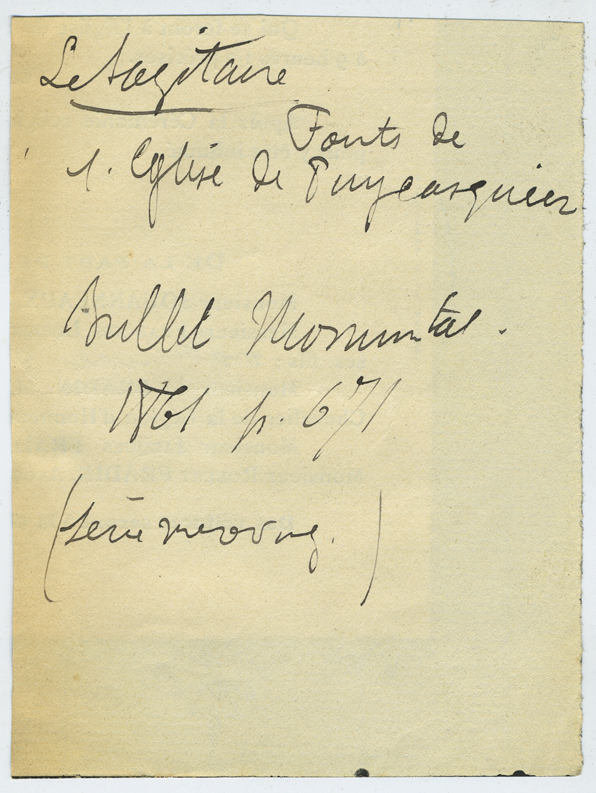 Le Sagitaire
Fonts de
l'Eglise de Puycasquier
Bullet Monumtal.
1861 p 671
(serie meroving.)